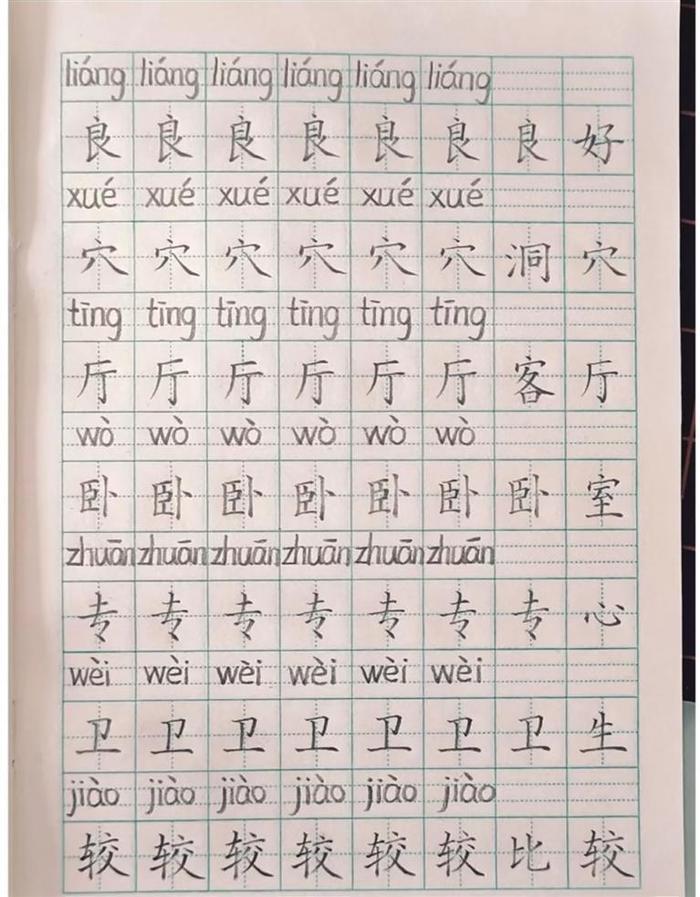 liáng liáng liáng liáng liáng liáng
良 良 良 良 良 良 良 好
xué xué xué xué xué xué
穴 穴 穴 穴 穴 穴 洞 穴
tīng tīng tīng tīng tīng tīng
厅 厅 厅 厅 厅 厅 客 厅
wò wò wò wò wò wò
卧 卧 卧 卧 卧 卧 卧 室
zhuān zhuān zhuān zhuān zhuān zhuān
专 专 专 专 专 专 专 心
wèi wèi wèi wèi wèi wèi
卫 卫 卫 卫 卫 卫 卫 生
jiào jiào jiào jiào jiào jiào
较 较 较 较 较 较 比 较